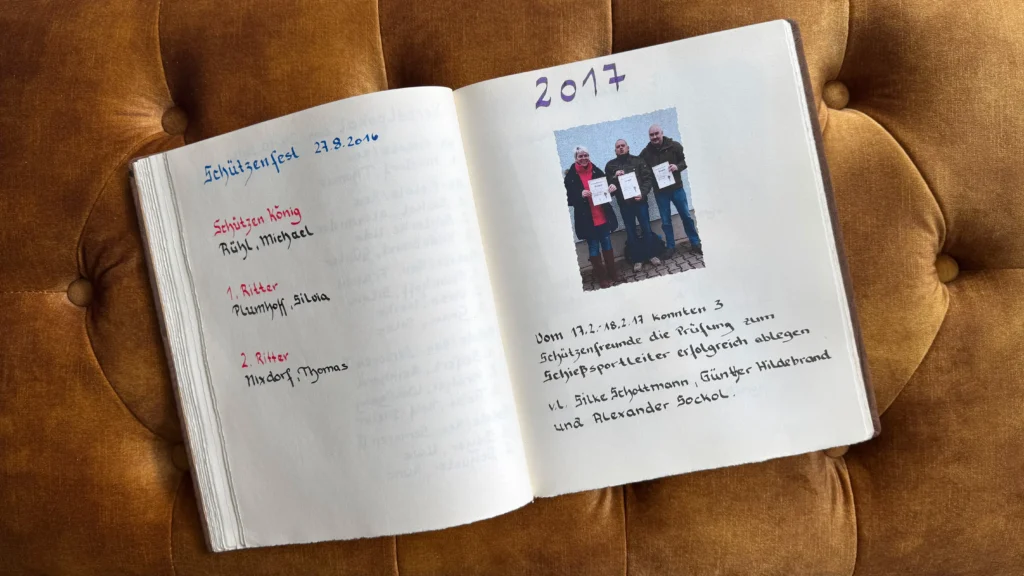 Schützenfest 27.8.2016
Schützen König
Rühl, Michael
1. Ritter
Plumhoff, Silvia
2. Ritter
Nixdorf, Thomas
2017
Vom 17.2.-18.2.17 konnten 3
Schützenfreunde die Prüfung zum
Schießsportleiter erfolgreich ablegen
v.l. Silke Schottmann, Günther Hildebrand
und Alexander Sockol.